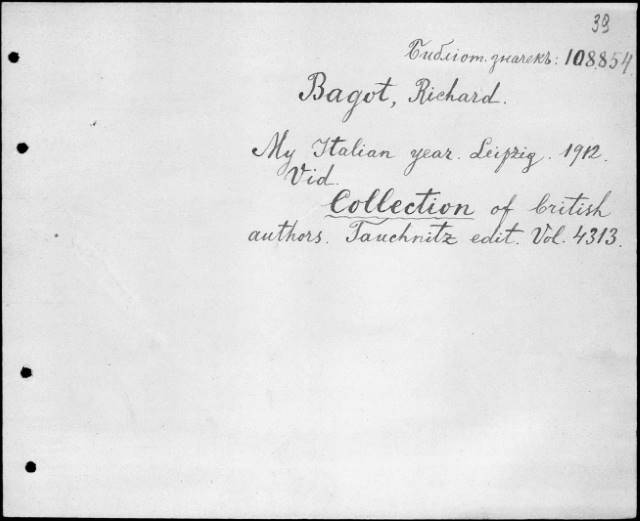 39
Библіот. значекъ: 108.854
Bagot, Richard.
My Italian year. Leipzig. 1912.
Vid.
Collection of british
authors. Tauchnitz edit. Vol. 4313.